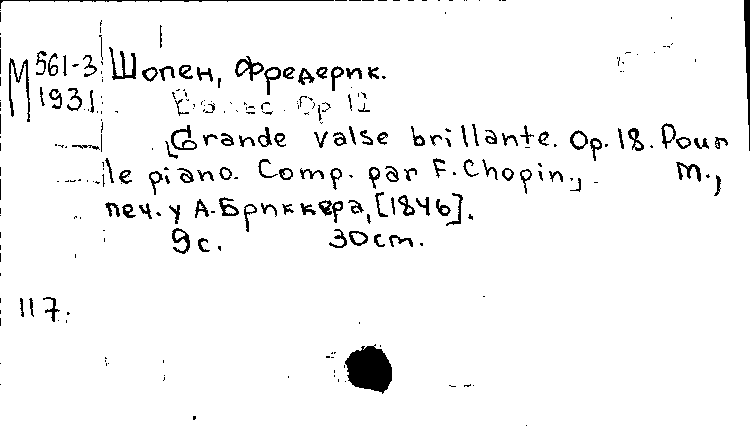 М 561-3
1931
Шопен, Фредерик.
Вальс. Op 12
Grande valse brillante. Op. 18. Pour
le piano. Comp. par F. Chopin., м.,
печ. у А. Бриккера, [1846].
9 с. 30 cm.
117.